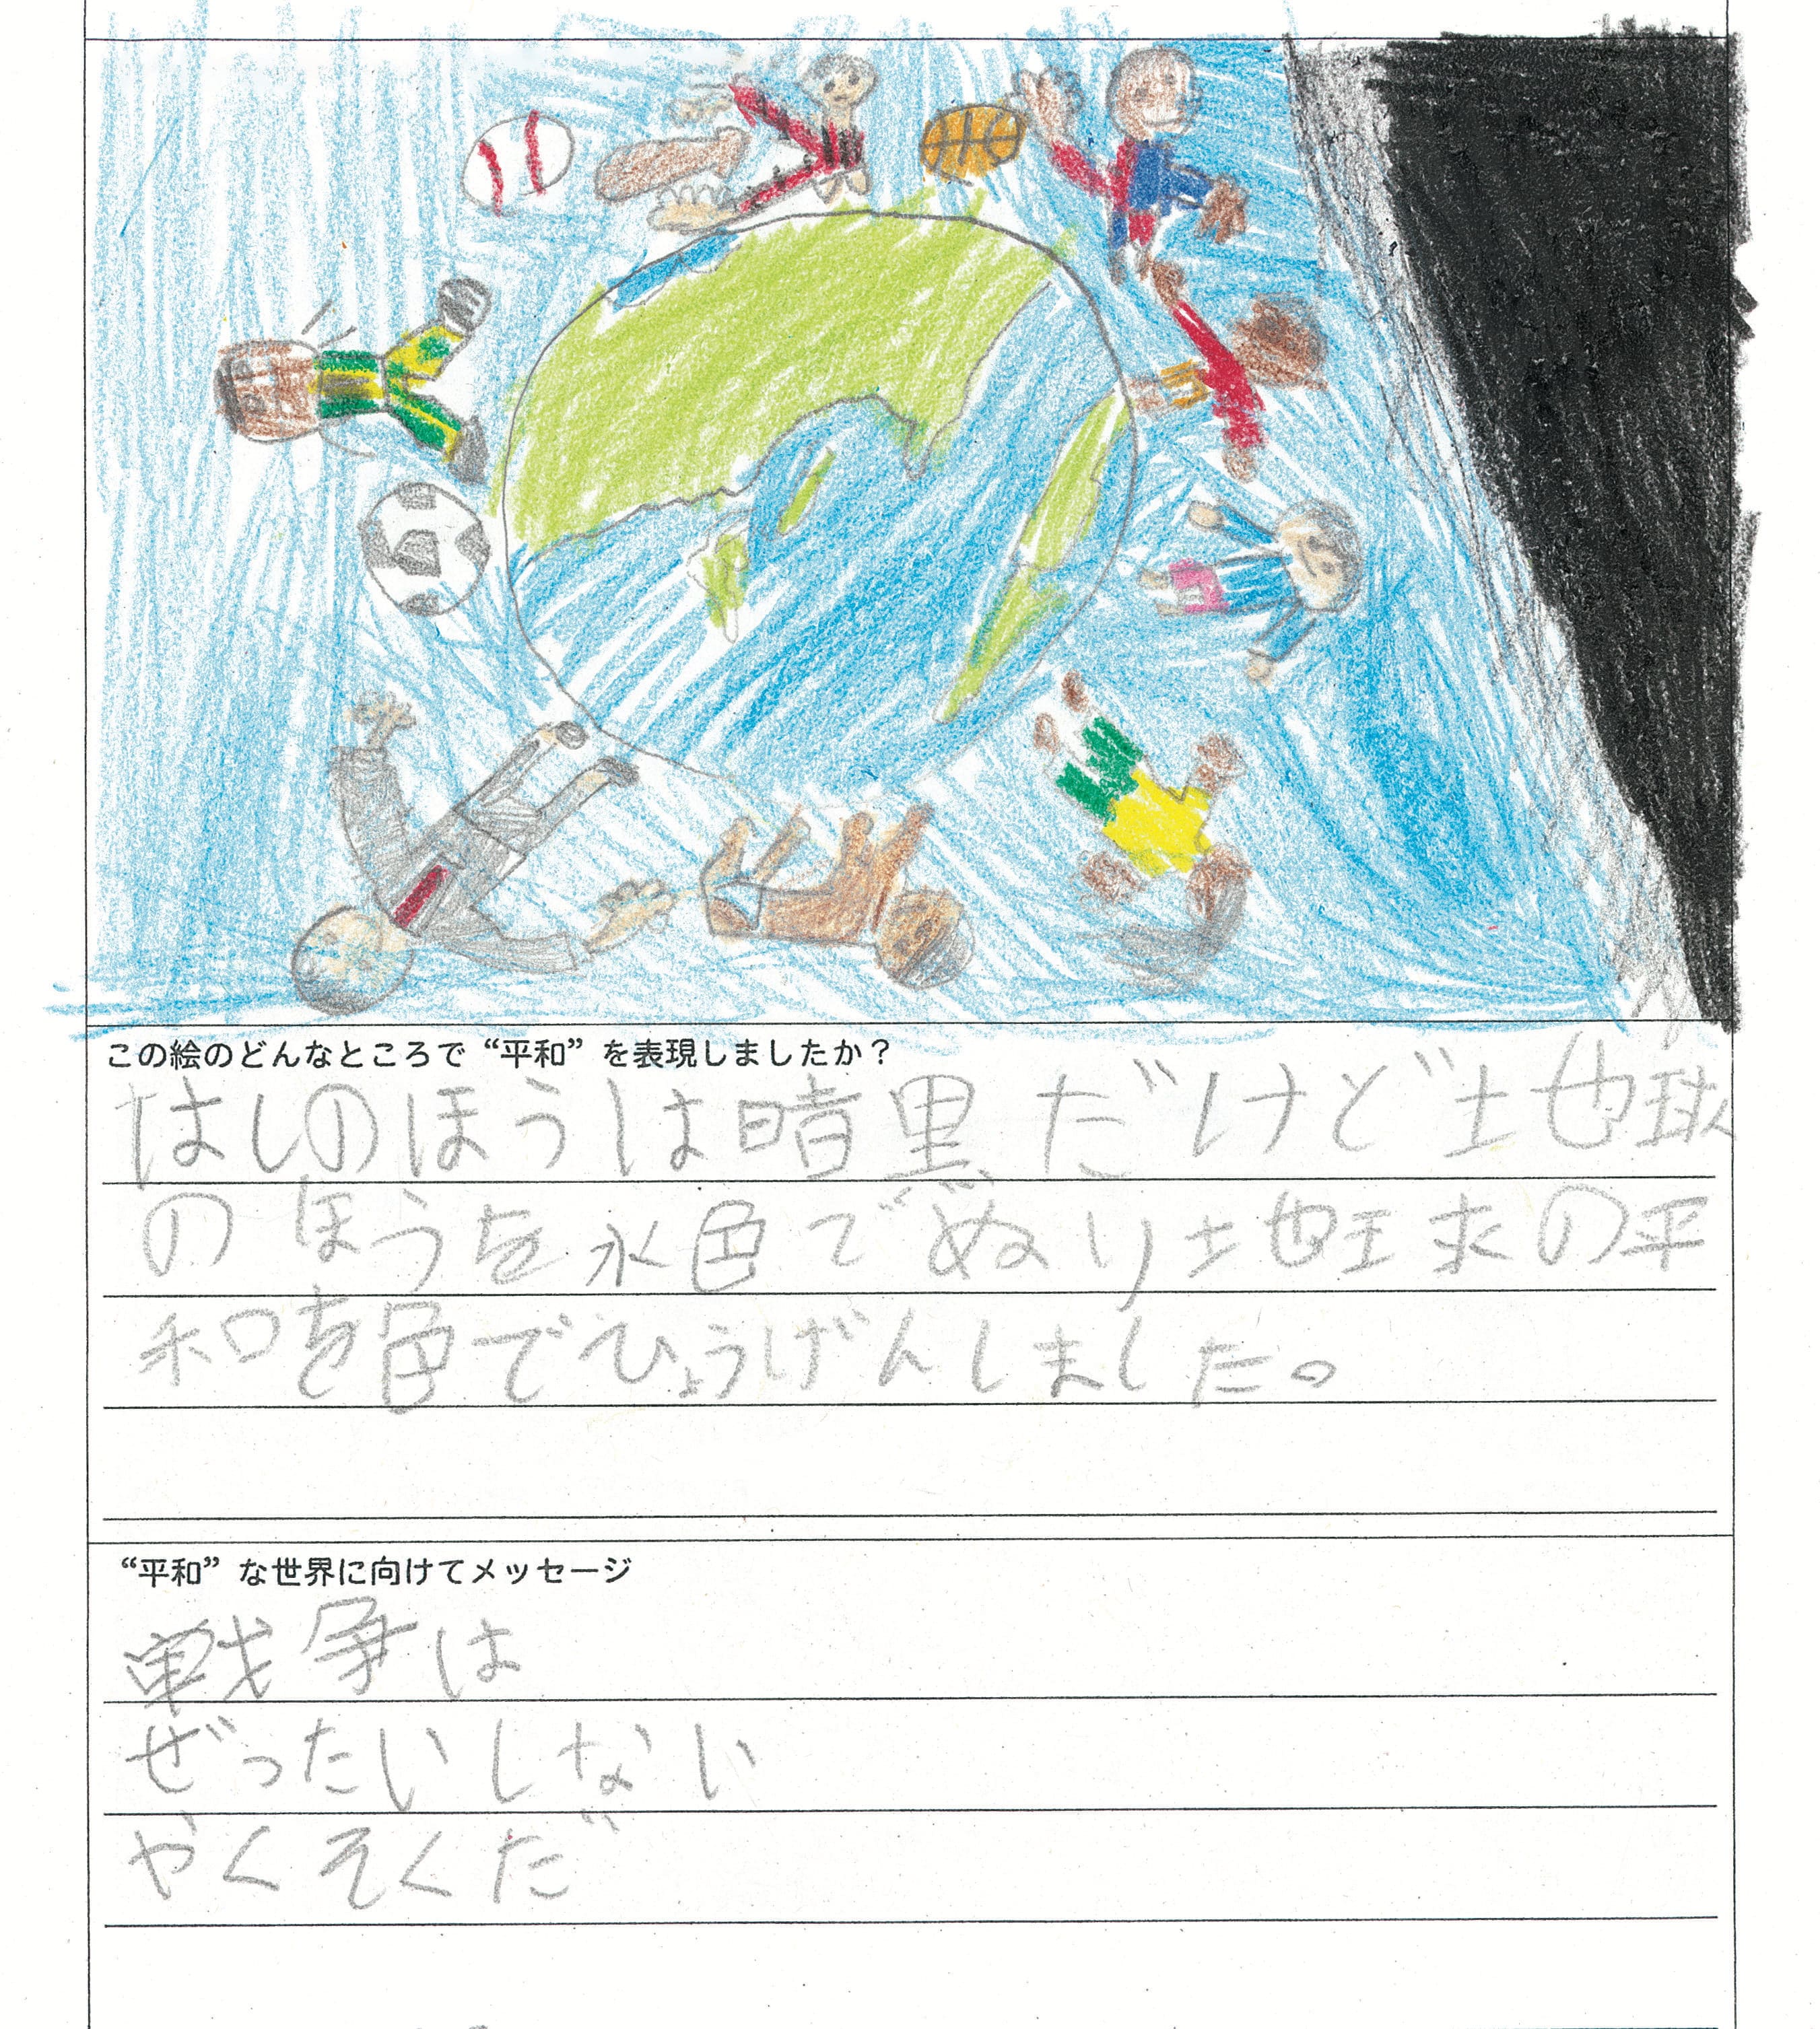 この絵のどんなところで“平和”を表現しましたか？
はしのほうは暗黒だけど地球
のほうを水色でぬり地球の平
和を色でひょうげんしました。
“平和”な世界に向けてメッセージ
戦争は
ぜったいしない
やくそくだ